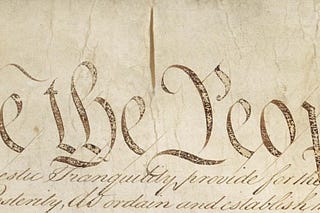 e the Peop
estic Tranquility, provide for the
osterity, do ordain and establish